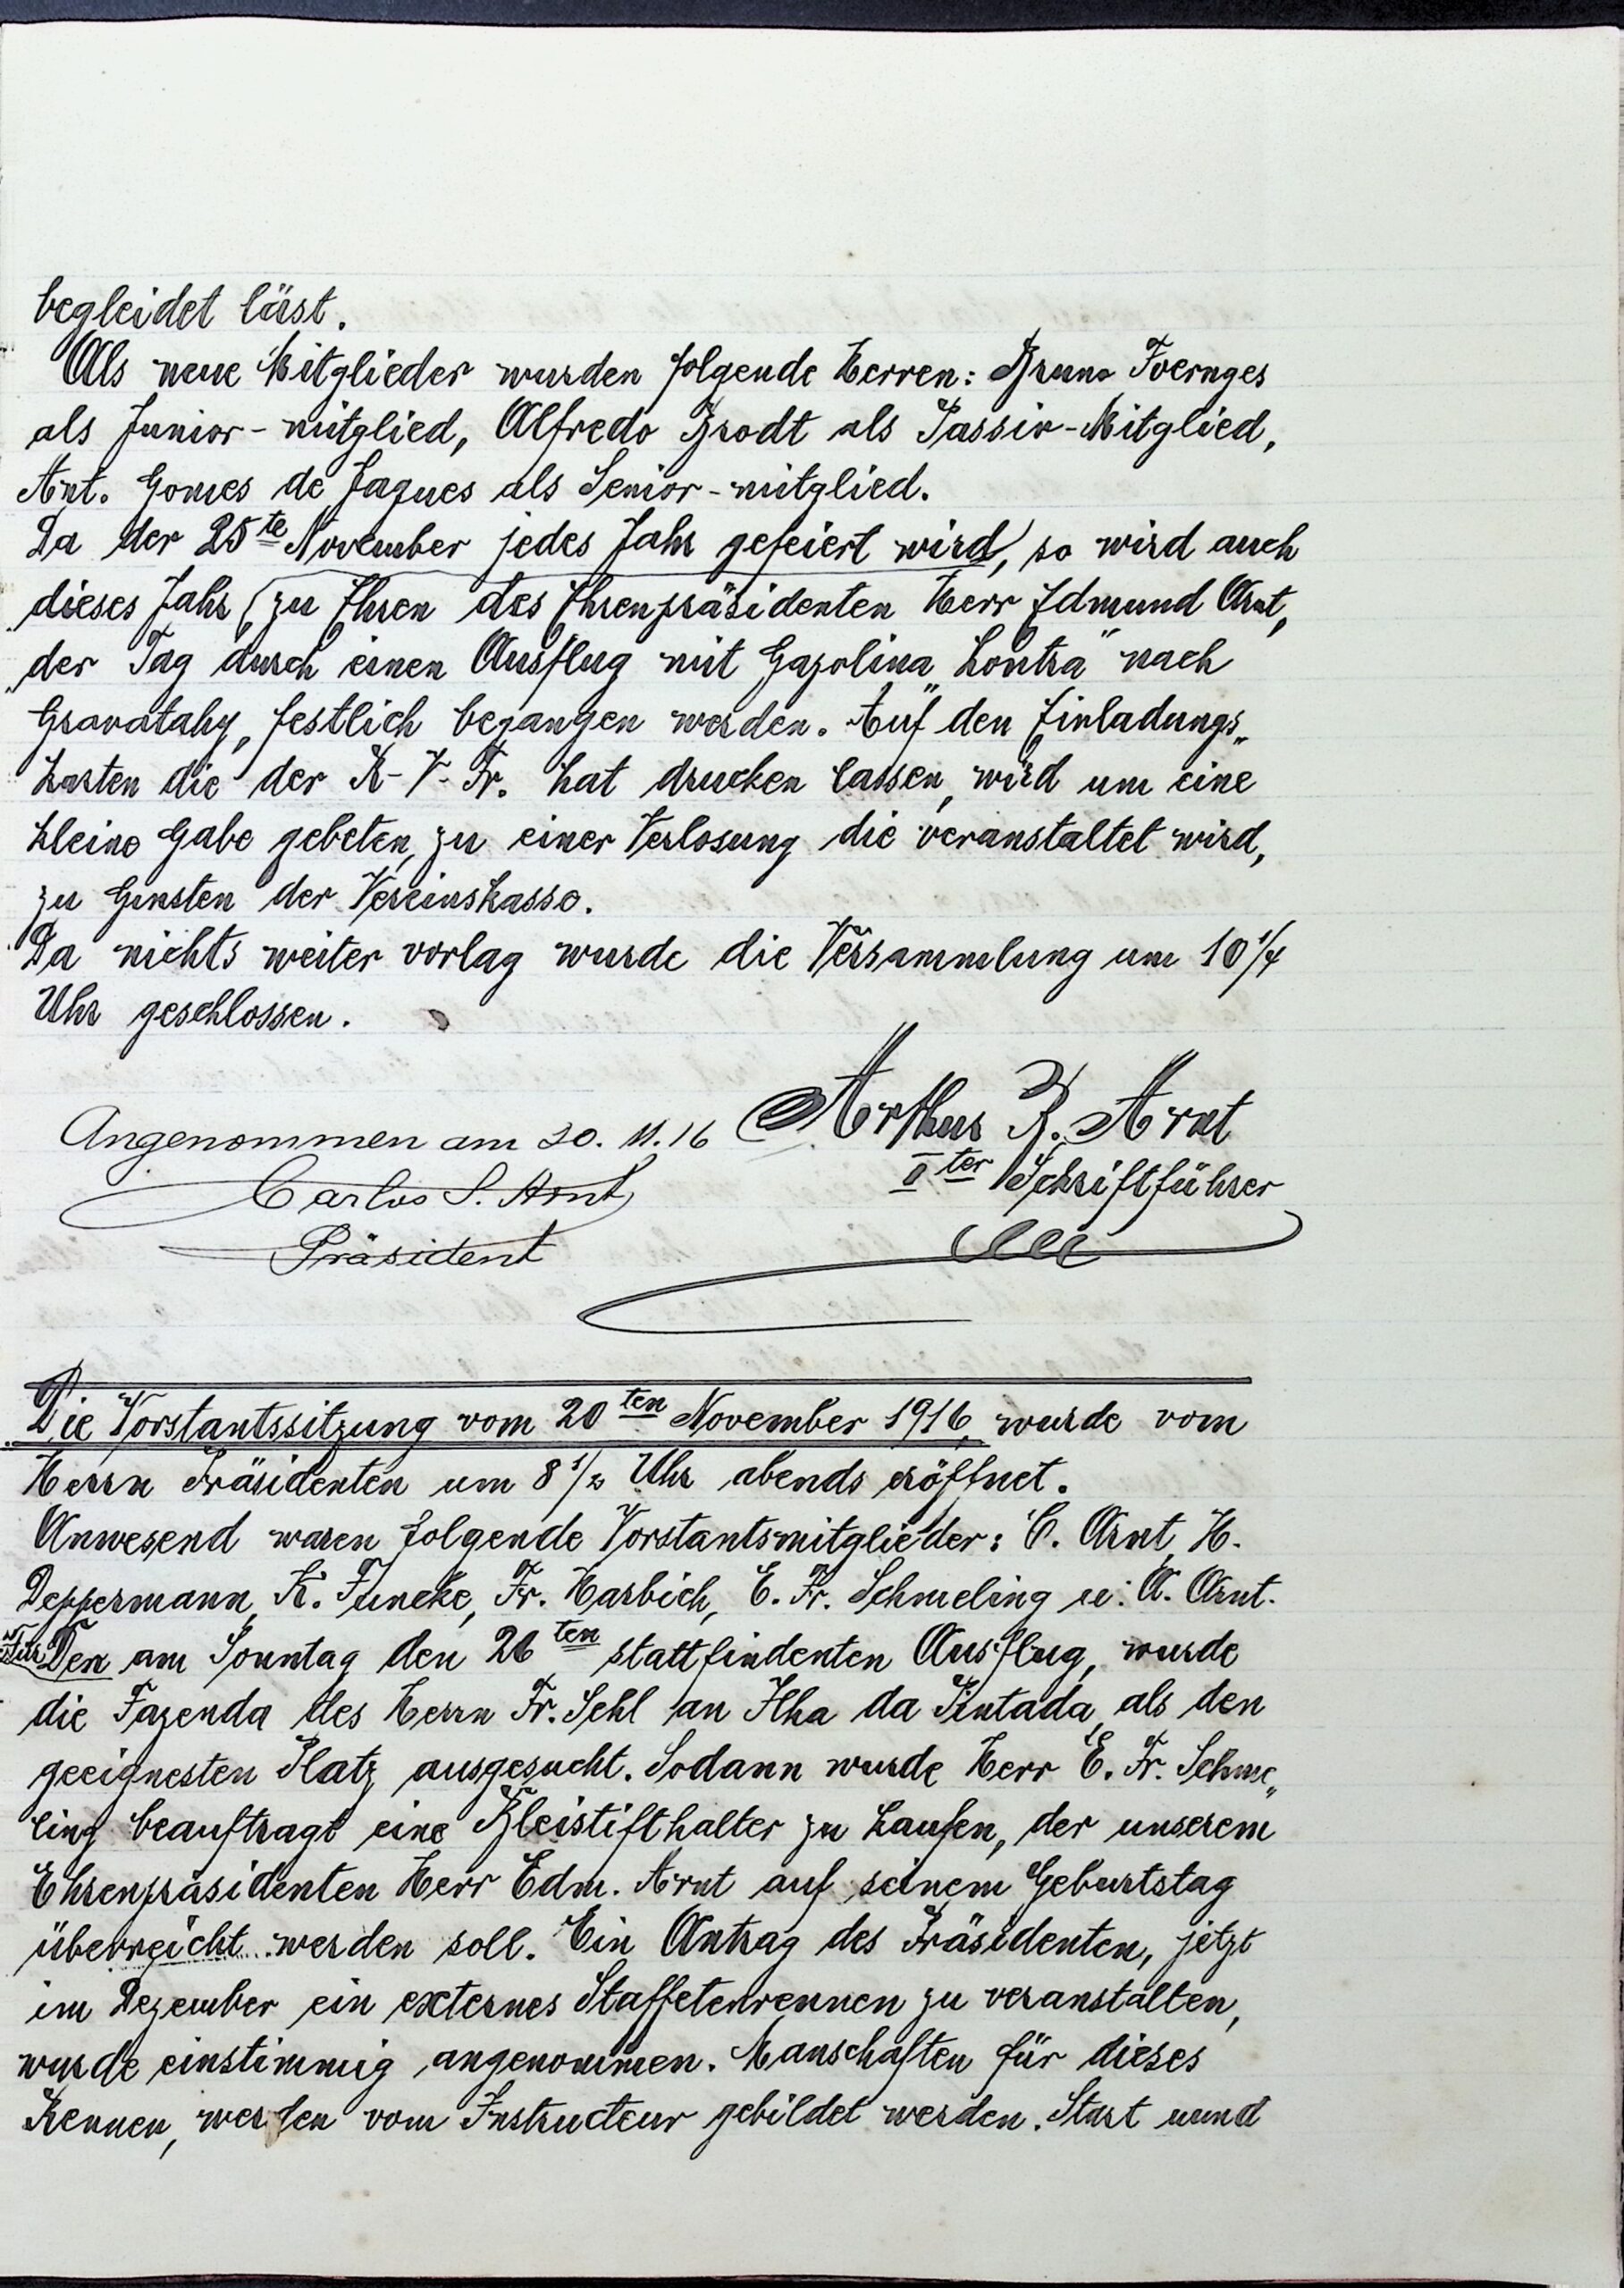 begleidet läst.
Als neue Mitglieder wurden folgende Herren: Bruno Foernges
als Junior-mitglied, Alfredo Brodt als Passiv-Mitglied,
Ant. Gomes de Jaques als Senior-mitglied.
Da der 25te November jedes Jahr gefeiert wird, so wird auch
dieses Jahr (zu Ehren des Ehrenpräsidenten Herr Edmund Arnt,
der Tag durch einen Ausflug mit Gazolina „Lontra" nach
Gravatahy, festlich begangen werden. Auf den Einladungs„
karten die der R-V-Fr. hat drucken lassen, wird um eine
kleine Gabe gebeten, zu einer Verlosung die veranstaltet wird,
zu Gunsten der Vereinskasse.
Da nichts weiter vorlag wurde die Versammlung um 10 1/4
Uhr geschlossen.
Arthur R. Arnt
IIter Schriftführer
Angenommen am 20. 11. 16
Carlos S. Arnt
Präsident
Die Vorstantssitzung vom 20ten November 1916, wurde vom
Herrn Präsidenten um 8 1/2 Uhr abends eröffnet.
Anwesend waren folgende Vorstantsmitglieder: C. Arnt, H.
Deppermann, K. Funcke, Fr. Harbich, E. Fr. Schmeling u. A. Arnt.
Für Den am Sonntag den 26ten stattfindenten Ausflug, wurde
die Fazenda des Herrn Fr. Sehl an Ilha da Pintada, als den
geeignesten Platz ausgesucht. Sodann wurde Herr E. Fr. Schme„
ling beauftragt eine Bleistifthalter zu kaufen, der unserem
Ehrenpräsidenten Herr Edm. Arnt auf seinem Geburtstag
überreicht werden soll. Ein Antrag des Präsidenten, jetzt
im Dezember ein externes Staffetenrennen zu veranstalten,
wurde einstimmig angenommen. Manschaften für dieses
Rennen, werden vom Instructeur gebildet werden. Start uund